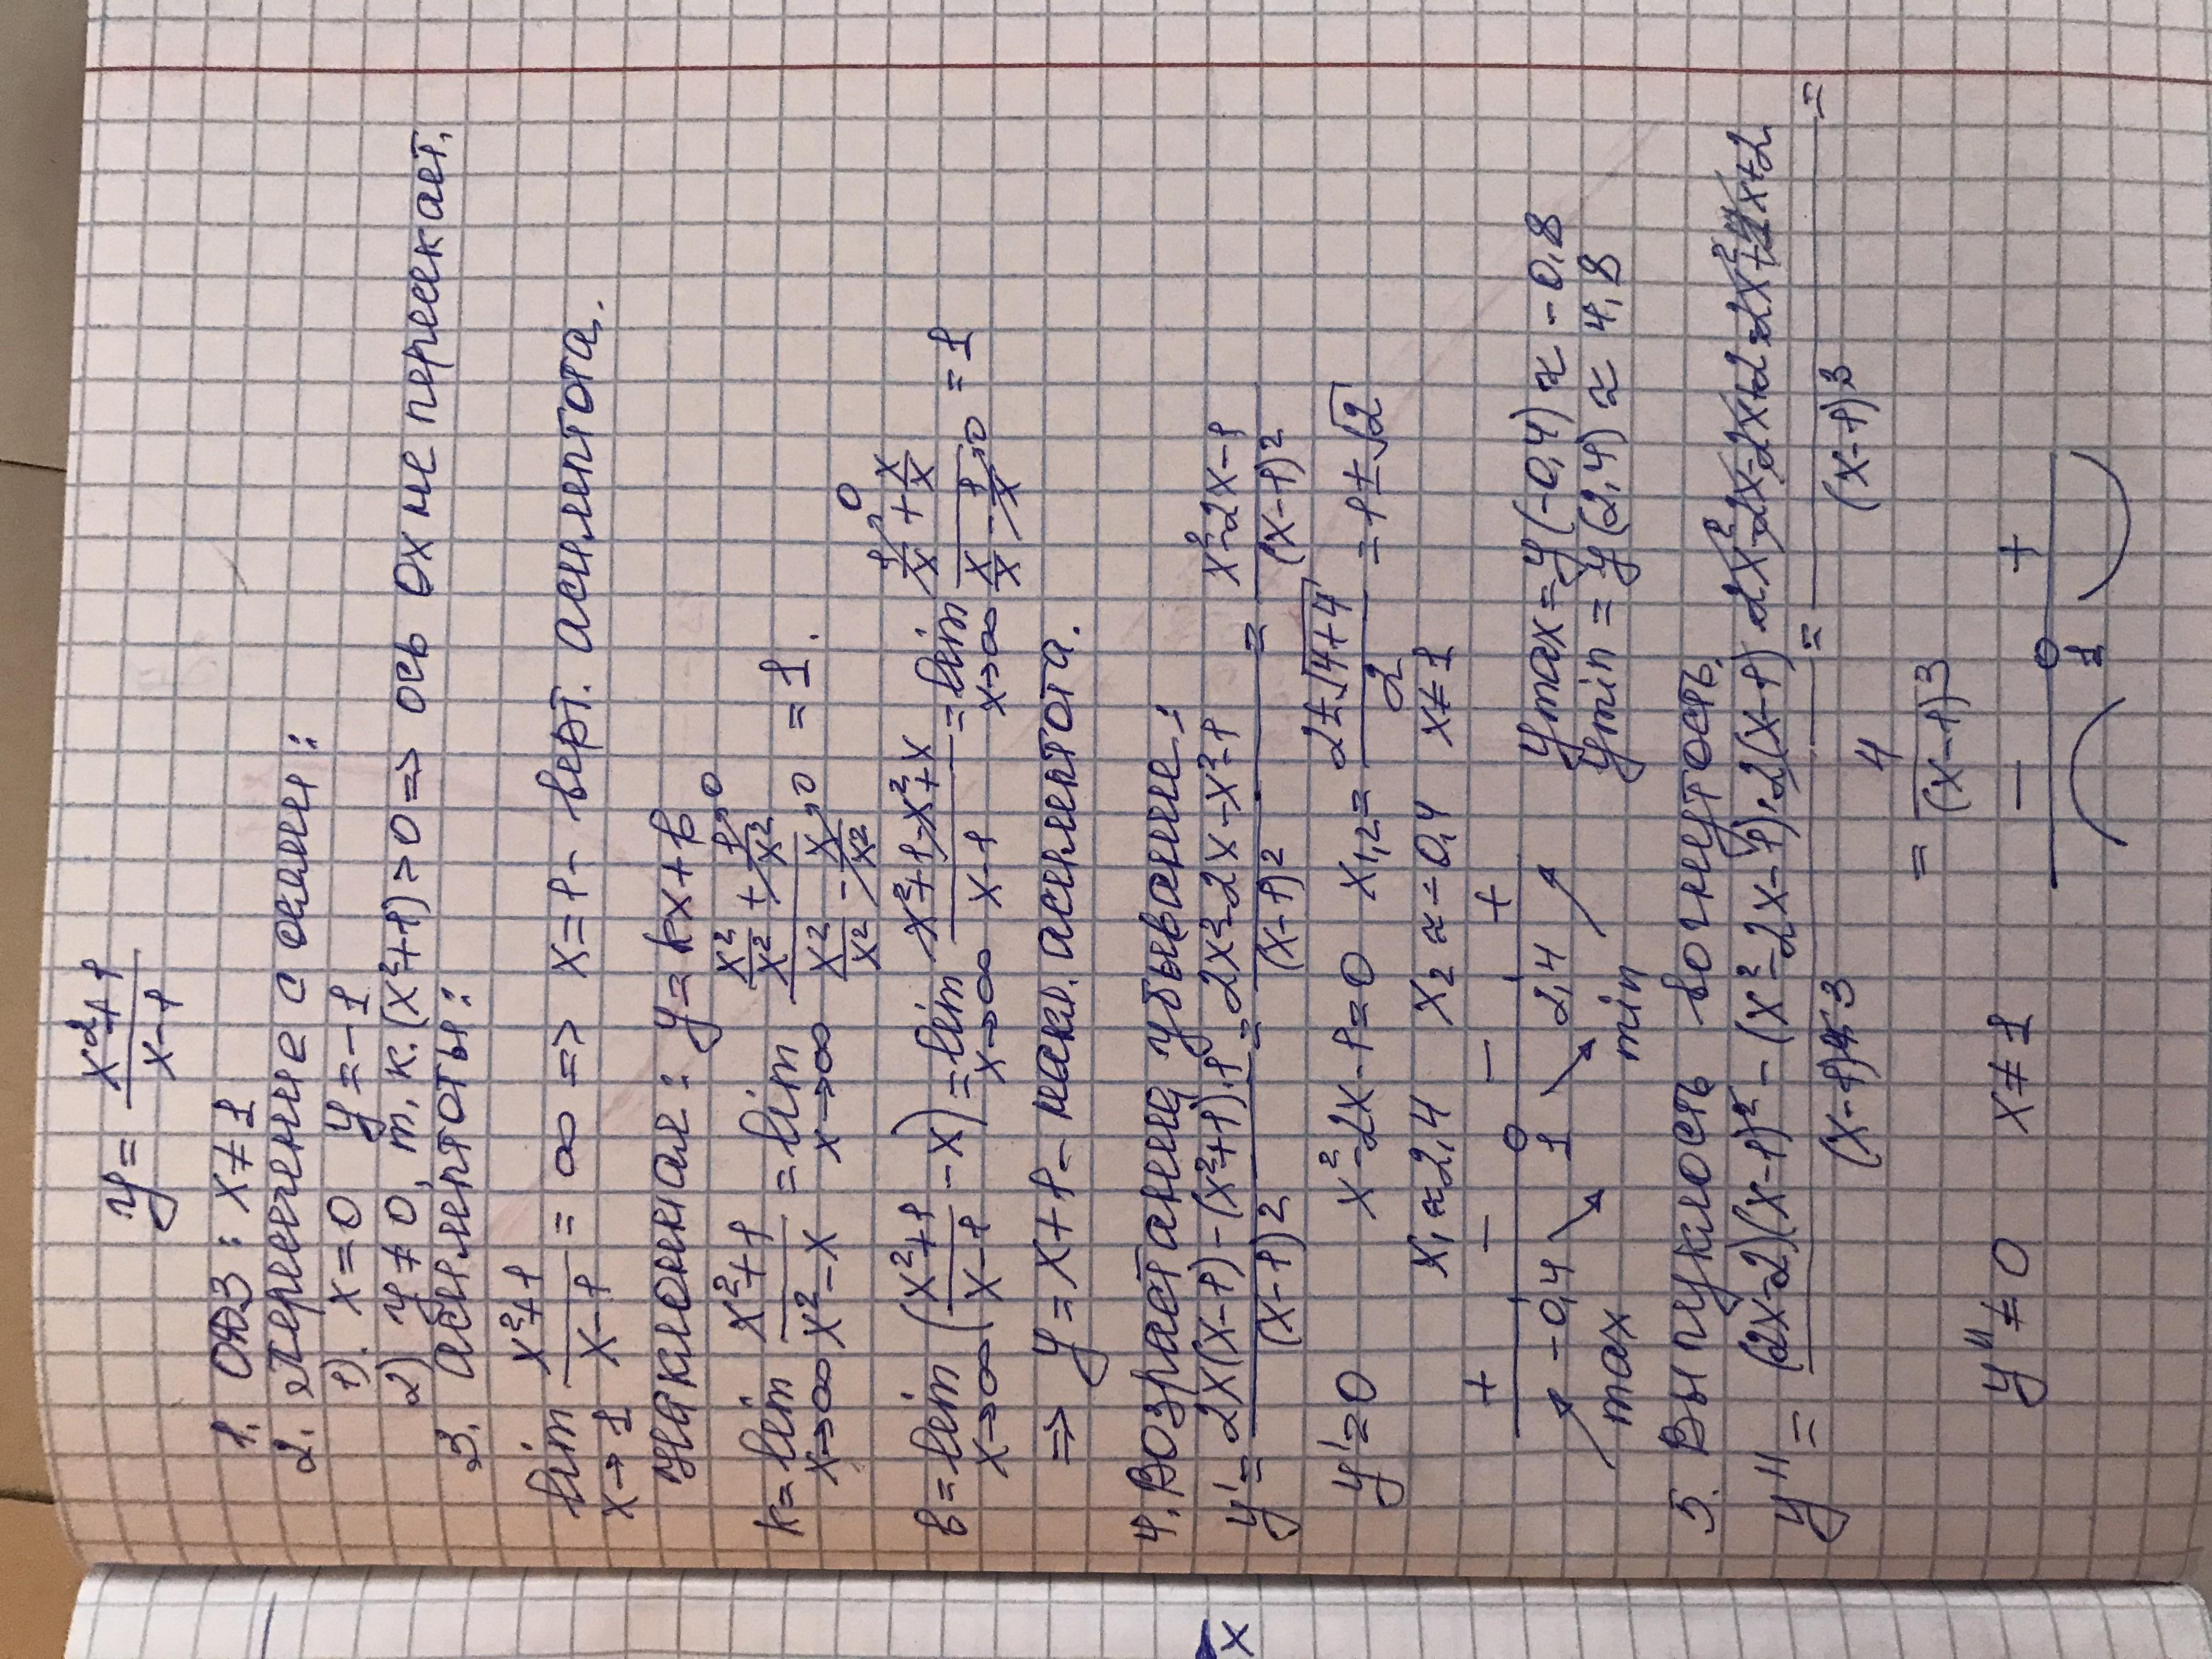 y = (x²+1)/(x-1)
1. ОДЗ: x ≠ 1
2. Пересечение с осями:
1). x=0 y=-1
2) y≠0, т.к. (x²+1)>0 => ось ох не пересекает.
3. Асимптоты:
lim x→1 (x²+1)/(x-1) = ∞ => x=1 - верт. асимптота.
Наклонная: y=kx+b
k = lim x→∞ (x²+1)/(x²-x) = lim x→∞ (x²/x² + 1/x²→0)/(x²/x² - x/x²→0) = 1.
b = lim x→∞ ((x²+1)/(x-1) - x) = lim x→∞ (x²+1-x²+x)/(x-1) = lim x→∞ (1/x→0 + x/x)/(x/x - 1/x→0) = 1
=> y = x+1 - накл. асимптота.
4. Возрастание, убывание:
y' = (2x(x-1)-(x²+1)·1)/(x-1)² = (2x²-2x-x²-1)/(x-1)² = (x²-2x-1)/(x-1)²
y'=0 x²-2x-1=0 x1,2 = (2±√4+4)/2 = 1±√2
x1≈2,4 x2≈-0,4 x≠1
+ - - +
-0,4 1 2,4
max min
ymax = y(-0,4) ≈ -0,8
ymin = y(2,4) ≈ 4,8
5. Выпуклость вогнутость.
y'' = ((2x-2)(x-1)² - (x²-2x-1)·2(x-1))/(x-1)⁴3 = (2x²-2x-2x+2-2x²+4x+2)/(x-1)³ =
= 4/(x-1)³
y''≠0 x≠1
- +
1
x